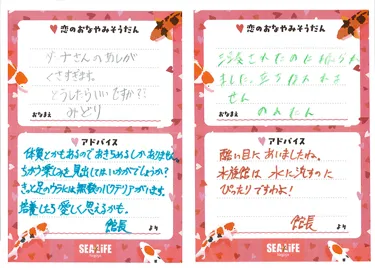 恋のおなやみそうだん
ダーナさんのあしが
くさすぎます。
どうしたらいいですか??
おなまえ
みどり
アドバイス
体質とかもあるのであきらめるしかありません。
ちがう楽しみを見出してはいかがでしょうか?
きっと足のウラには無数のバクテリアがいます。
培養したら愛しく思えるかも。
館長
より
SEA LIFE
Nagoya
恋のおなやみそうだん
ました。
せん
おなまえ
のんたん
アドバイス
酷い目にあいましたね。
水族館は水に流すのに
ぴったりですわよ!
館長
より
SEA LIFE
Nagoya